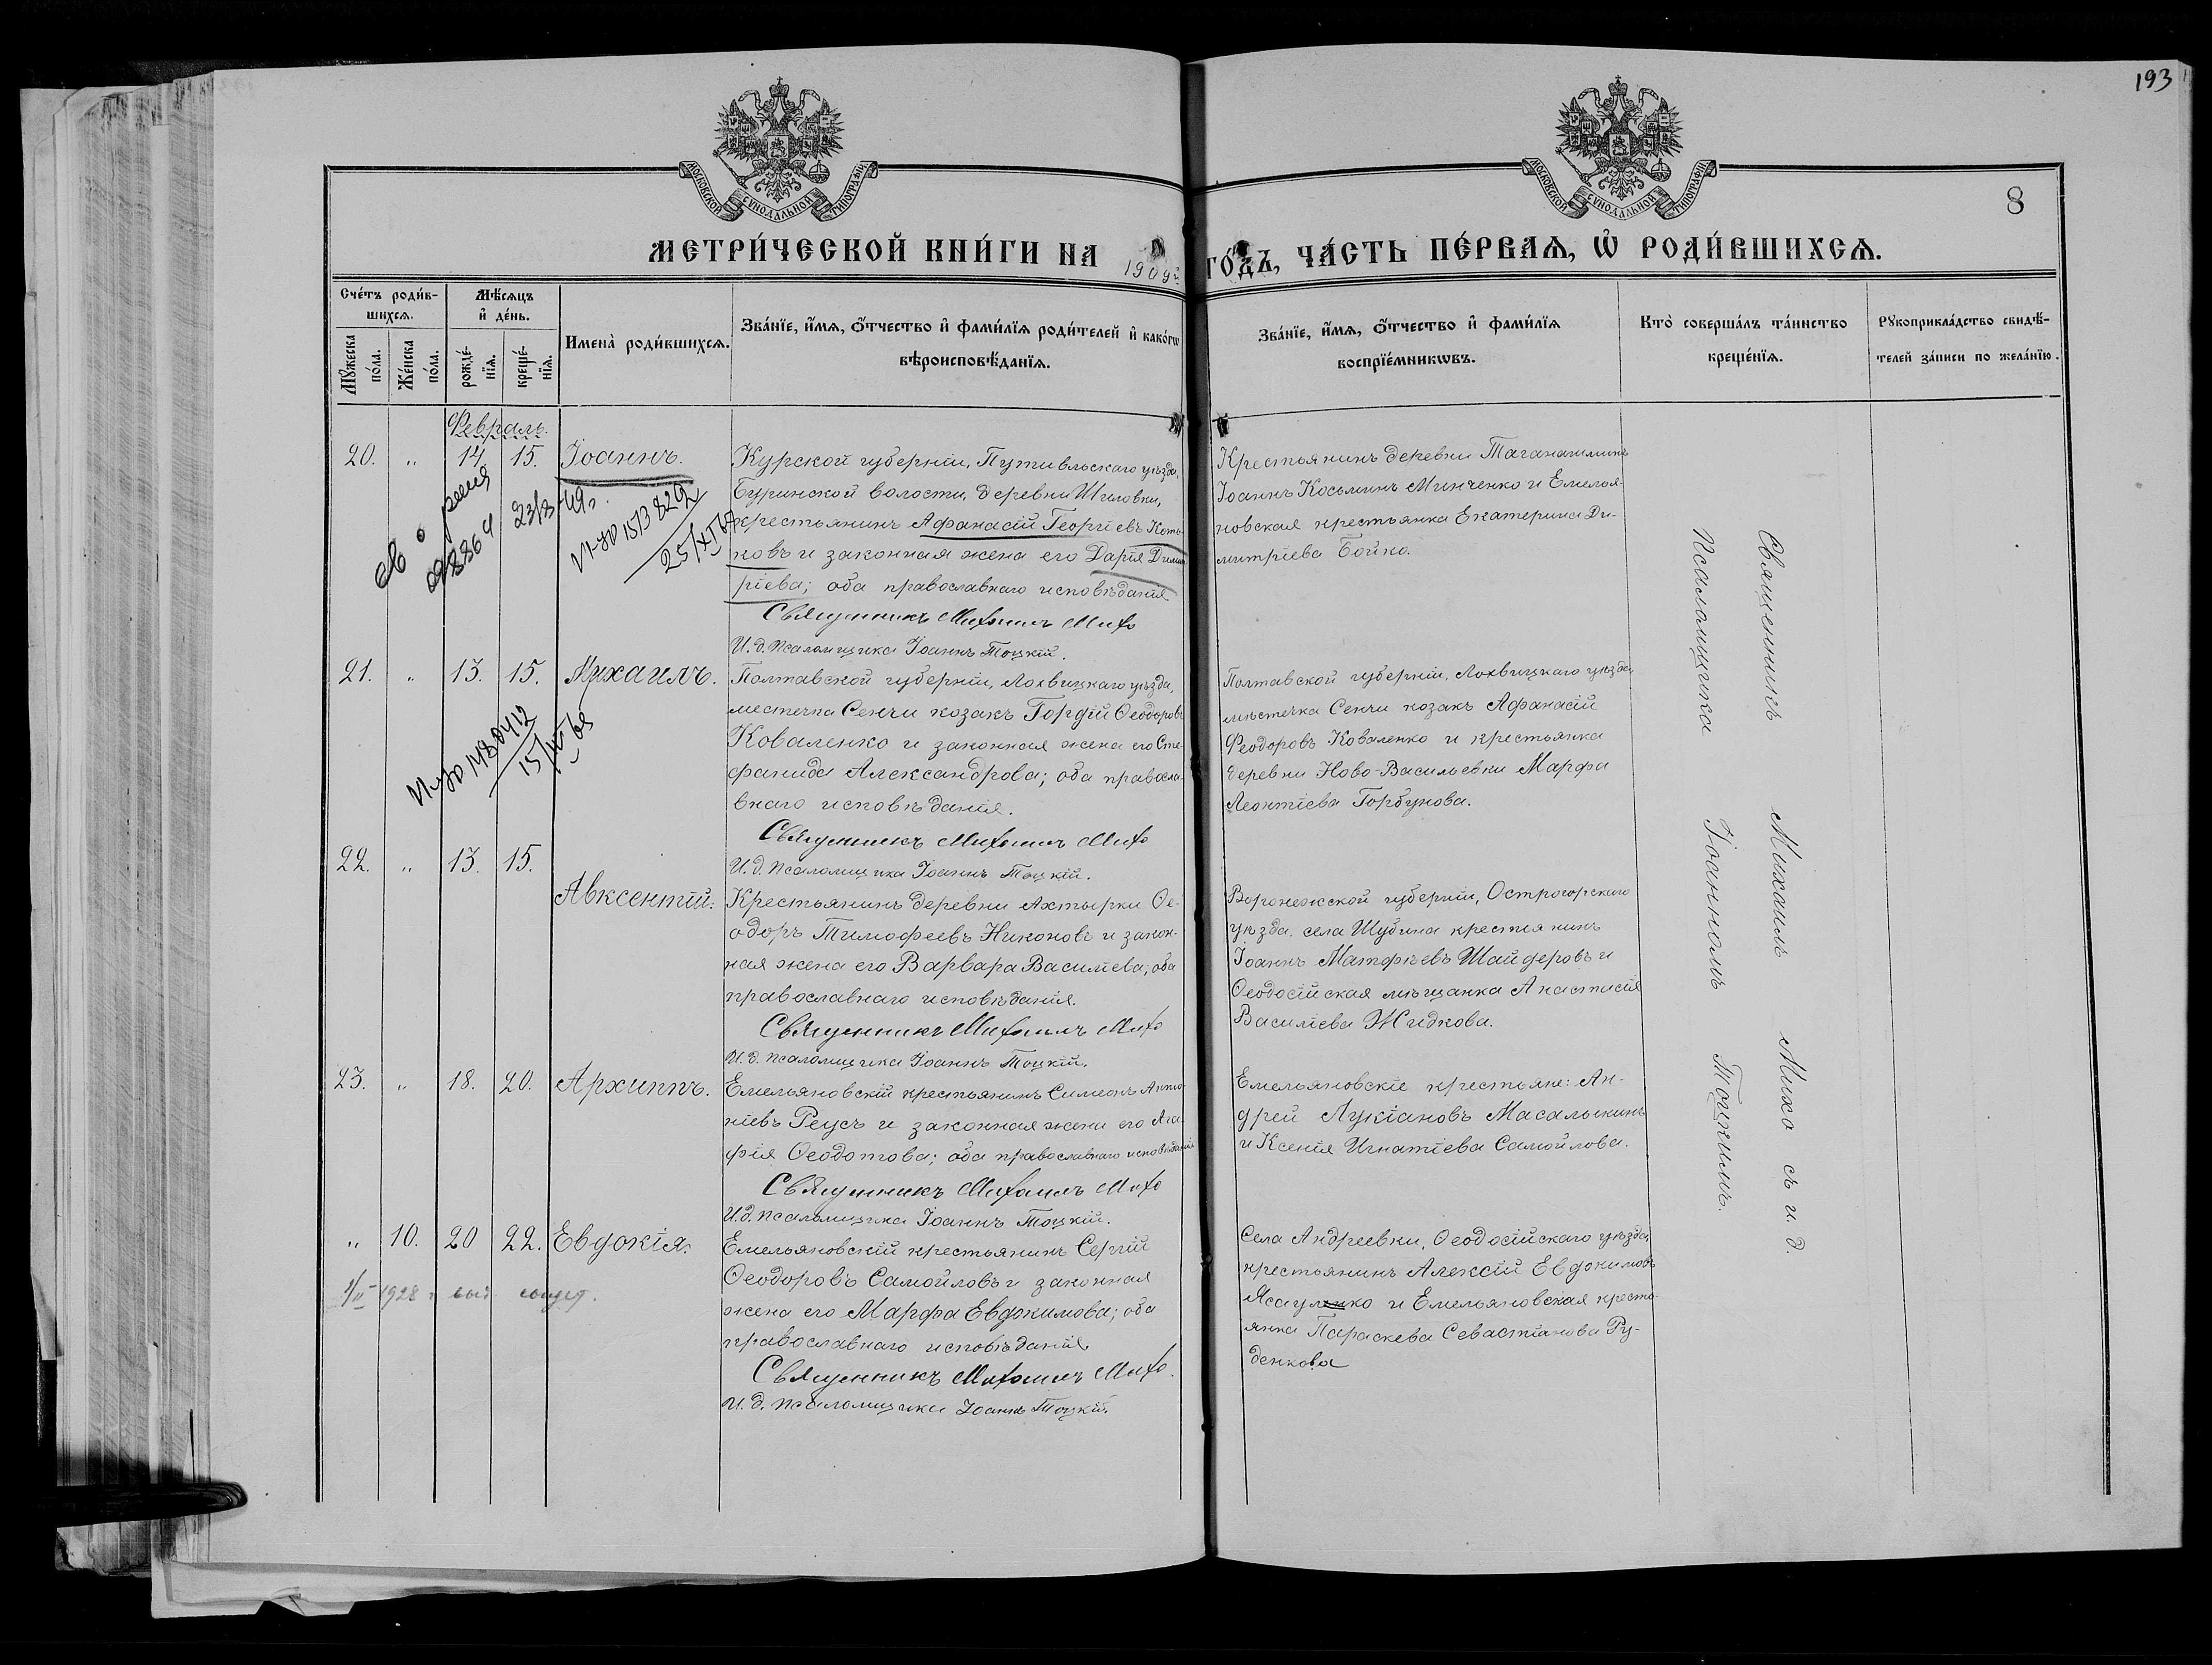 193
8
МОСКОВСКОЙ СУНОДАЛЬНОЙ ТИПОГРАФІИ
МОСКОВСКОЙ СУНОДАЛЬНОЙ ТИПОГРАФІИ
МЕТРИ́ЧЕСКОЙ КНИ́ГИ НА 1909й ГО́ДЪ, ЧА́СТЬ ПЕ́РВАѦ, Ѡ҆ РОДИ́ВШИХСѦ.
Сче́тъ роди́в-
шихсѧ.
Мꙋ́жеска по́ла.
Же́нска по́ла.
Мѣ́сѧцъ
и҆ де́нь.
рожде́-
нїѧ.
креще́-
нїѧ.
Имена̀ роди́вшихсѧ.
Зва́нїе, и҆́мѧ, ѻ҆́тчество и҆ фами́лїѧ роди́телей и҆ како́гѡ
вѣроисповѣ́данїѧ.
Зва́нїе, и҆́мѧ, ѻ҆́тчество и҆ фами́лїѧ
воспрїе́мникѡвъ.
Кто̀ соверша́лъ та́инство
креще́нїѧ.
Рꙋкоприкла́дство свидѣ́-
телей за́писи по жела́нїю.
Февраль.
20. „ 14. 15. Іоаннъ.
23/3-49г.
25/XI
Курской губерніи, Путивльскаго уѣзда,
Буринской волости, деревни
крестьянинъ Афанасій Георгіевъ Кот-
ковъ и законная жена его Дарія Димит-
ріева; оба православнаго исповѣданія
Священникъ Михаилъ Михо
И. д. псаломщика Іоаннъ Тоцкій.
Крестьянинъ деревни
Іоаннъ Косьминъ Минченко и Емелья-
новская крестьянка Екатерина Ди-
митріева Бойко.
21. „ 13. 15. Михаилъ.
Полтавской губерніи, Лохвицкаго уѣзда,
местечка Сенчи козакъ Гордій Ѳеодоровъ
Коваленко и законная жена его Сте-
фанида Александрова; оба правосла-
внаго исповѣданія.
Священникъ Михаилъ Михо
И. д. псаломщика Іоаннъ Тоцкій.
Полтавской губерніи, Лохвицкаго уѣзда,
мѣстечка Сенчи козакъ Афанасій
Феодоровъ Коваленко и крестьянка
деревни Ново-Васильевки Марфа
Леонтіева Горбунова.
22. „ 13. 15. Авксентій.
Крестьянинъ деревни Ахтырки Ѳе-
одоръ Тимофеевъ Никоновъ и закон-
ная жена его Варвара Василіева; оба
православнаго исповѣданія.
Священникъ Михаилъ Михо
И. д. псаломщика Іоаннъ Тоцкій.
Воронежской губерніи, Острогорскаго
уѣзда, села Шубина крестьянинъ
Іоаннъ Матфіевъ Шайдеровъ и
Ѳеодосійская мѣщанка Анастасія
Василіева Жидкова.
23. „ 18. 20. Архиппъ.
Емельяновскій крестьянинъ Симеонъ Анто-
ніевъ Реусъ и законная жена его Ага-
фія Ѳеодотова; оба православнаго исповѣданія
Священникъ Михаилъ Михо
И. д. псаломщика Іоаннъ Тоцкій.
Емельяновскіе крестьяне: Ан-
дрей Лукіановъ Масалыкинъ
и Ксенія Игнатіева Самойлова.
„ 10. 20 22. Евдокія.
1928 г.
Емельяновскій крестьянинъ Сергій
Ѳеодоровъ Самойловъ и законная
жена его Марфа Евдокимова; оба
православнаго исповѣданія.
Священникъ Михаилъ Михо.
И. д. псаломщика Іоаннъ Тоцкій.
Села Андреевки, Ѳеодосійскаго уѣзда,
крестьянинъ Алексій Евдокимовъ
и Емельяновская кресть-
янка Параскева Севастіанова Ру-
денкова
Священникъ Михаилъ Михо съ и. д.
Псаломщика Іоанномъ Тоцкимъ.